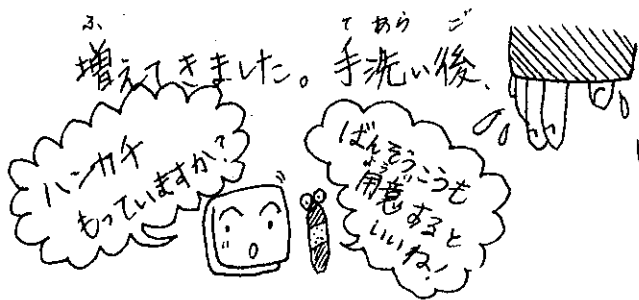 ふ　　　　　　　てあら　ご
増えてきました。手洗い後、
ハンカチ
もっていますか？
ばんそうこうも
ようい
用意すると
いいね！